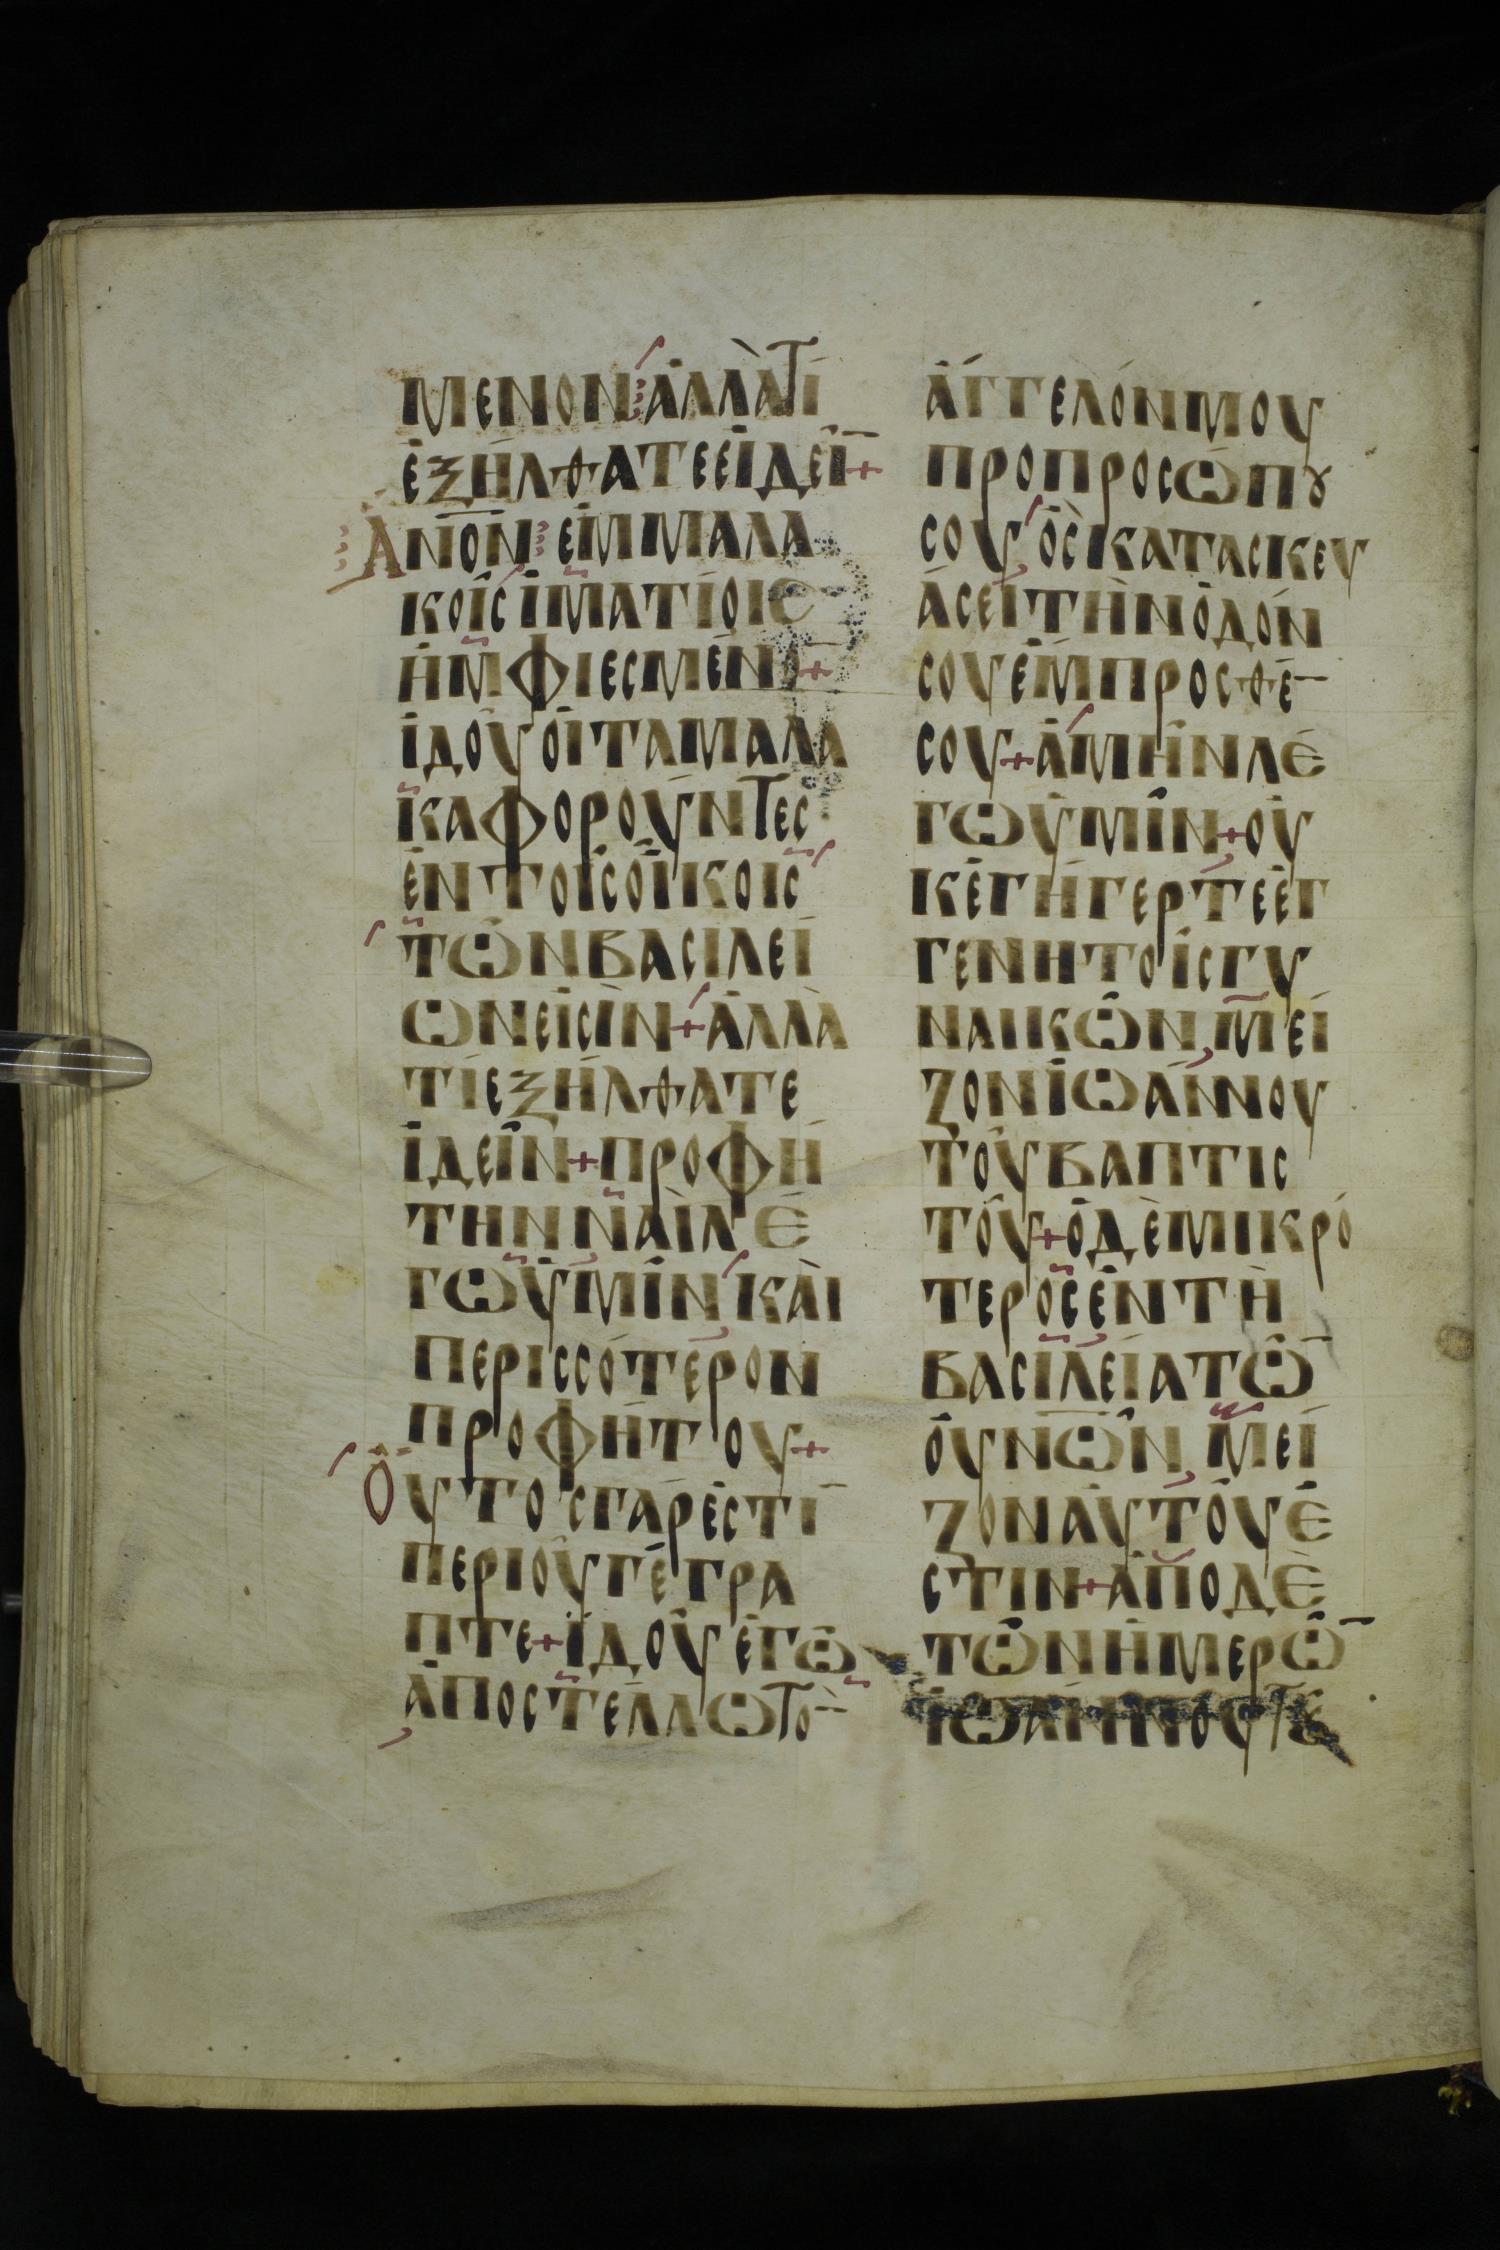 ΜΕΝΟΝ ἈΛΛᾺ ΤΊ
ἘΞΉΛΘΑΤΕ ΕἸΔΕΙ͂̅ +
ἈΝΟ̅Ν ἘΜ ΜΑΛΑ
ΚΟΙ͂Σ ἹΜΑΤΊΟΙΣ
ἨΜΦΙΕΣΜΈΝΟ̅ +
ἸΔΟῪ ΟἹ ΤΑ ΜΑΛΑ
ΚΑ ΦΟΡΟΥ͂ΝΤΕΣ
ἘΝ ΤΟΙ͂Σ ΟἼΚΟΙΣ
ΤΩ͂Ν ΒΑΣΙΛΕΊ
ΩΝ ΕἸΣῚΝ + ἈΛΛᾺ
ΤΊ ΕΞΉΛΘΑΤΕ
ἸΔΕΙ͂Ν + ΠΡΟΦΉ
ΤΗΝ ΝΑῚ ΛΈ
ΓΩ ὙΜΙ͂Ν ΚΑῚ
ΠΕΡΙΣΣΌΤΕΡΟΝ
ΠΡΟΦΉΤΟΥ +
ΟὟΤΟΣ ΓΆΡ ἘΣΤΙ̅
ΠΕΡΙ ΟὟ ΓΈΓΡΑ
ΠΤΕ + ἸΔΟῪ ἘΓῺ
ἈΠΟΣΤΈΛΛΩ ΤΟ̅
ἌΓΓΕΛΌΝ ΜΟΥ
ΠΡΟ ΠΡΟΣΏΠȢ
ΣΟΥ ὋΣ ΚΑΤΑΣΚΕΥ
ΆΣΕΙ ΤῊΝ ὉΔΌΝ
ΣΟΥ ἜΜΠΡΟΣΘΕ̅
ΣΟΥ + ἈΜΉΝ ΛΈ
ΓΩ ὙΜΙ͂Ν + ΟΥ
Κ ἘΓΉΓΕΡΤΕ ἘΓ
ΓΕΝΗΤΟΙ͂Σ ΓΥ
ΝΑΙΚΩ͂Ν ΜΕΊ
ΖΟΝ ἸΩΆΝΝΟΥ
ΤΟΥ͂ ΒΑΠΤΙΣ
ΤΟΥ͂ + Ὁ ΔῈ ΜΙΚΡΌ
ΤΕΡΟΣ ἘΝ ΤΗ͂
ΒΑΣΙΛΕΊΑ ΤΩ͂̅
ΟΥ̓ΝΩ̅͂Ν ΜΕΊ
ΖΟΝ ΑΥ̓ΤΟΥ͂ Ἐ
ΣΤΙΝ + ἈΠΟ ΔῈ
ΤΩ͂Ν ἩΜΕΡΩ͂̅
ἸΩΆΝΝΟΥ ΤΕ